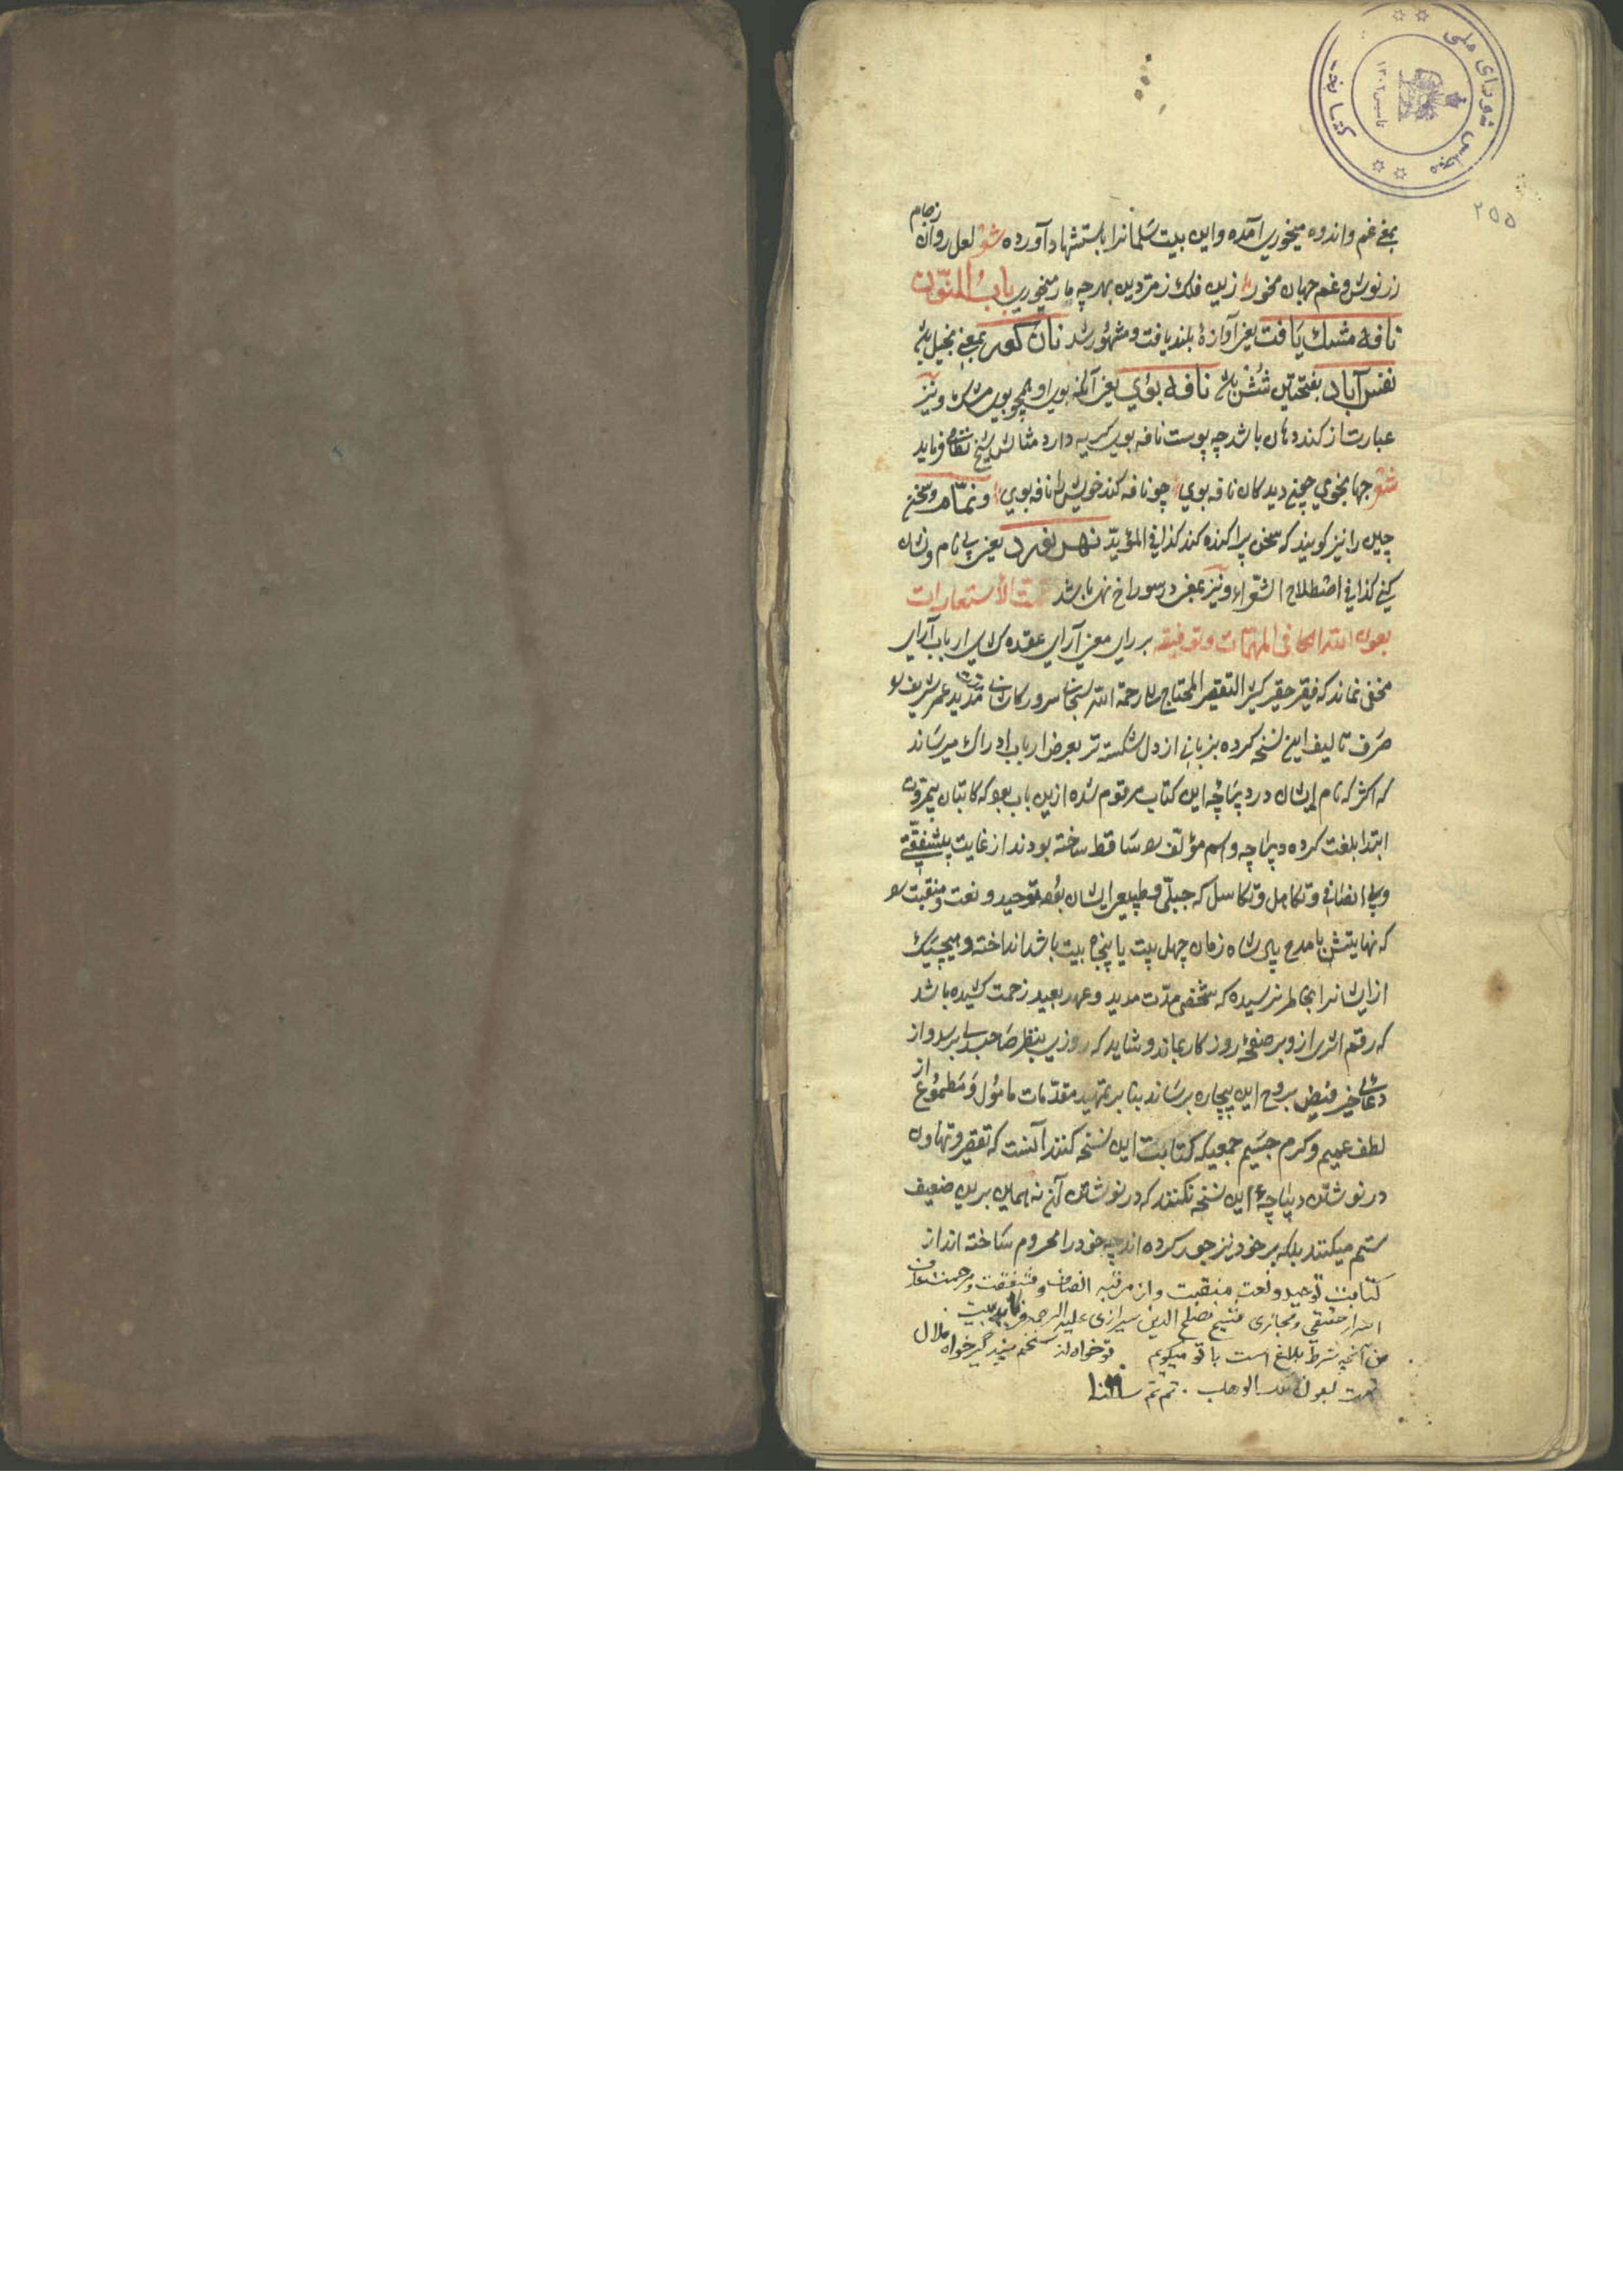 کتابخانه مجلس شورای ملی
تاسیس ۱۳۰۲
۲۵۵
بمعنی غم و اندوه میخوری آمده و این بیت سلمانرا باستشهاد آورده شعر لعل روان ز جام
زر نوش و غم جهان مخور زین فلک زمردین بهر چه مار میخوری باب النون
نافه مشک یافت یعنی آوازهٔ بلند یافت و مشهور شد نان کور بمعنی بخیل باشد
نفس آباد بفتحتین شش باشد نافه بوی یعنی آنکه بوی او همچو بوی مشک و نیز
عبارت از گنده دهان باشد چه پوست نافه بوی کریه دارد مثالش شیخ نظامی فرماید
شعر جهانجوی چون دید کان نافه بوی چو نافه کند خویش را نافه بوی و نمام و سخن
چین را نیز گویند که سخن پراکنده کند کذا فی المؤید یعنی بی نام و نشان
کنی کذا فی اصطلاح الشعراء و نیز بمعنی در سوراخ نهان باشد تمت الاستعارات
بعون الله الکافی المهمات و توفیقه بر رای معنی آرای عقده گشای ارباب آرای
مخفی نماند که فقیر حقیر کثیر التقصیر المحتاج الی رحمة الله سبحانی سرور کاشانی مدید عمر شریف را
صرف تالیف این نسخه کرده بزبانی از دل شکسته تر بعرض ارباب ادراک میرساند
که اکثر که نام ایشان در دیباچهٔ این کتاب مرقوم شده ازین باب بود که کاتبان بیمروت
ابتدا بلغت کرده دیباچه و اسم مؤلف را ساقط ساخته بودند از غایت بیشفقتی
و بی انصافی و تکامل و تکاسل که جبلی و طبیعی ایشان بوده توحید و نعت و منقبت را
که نهایتش با مدح پادشاه زمان چهل بیت یا پنجاه بیت باشد انداخته و هیچیک
از ایشانرا بخاطر نرسیده که شخصی مدت مدید و عهد بعید زحمت کشیده باشد
که رقم اثری از و بر صفحهٔ روزگار بماند و شاید که روزی بنظر صاحبدلی برسد و از
دعای خیر فیض بروح این بیچاره برساند بنا بر تمهید مقدمات مامول و مطموع از
لطف عمیم و کرم جسیم جمعی که کتابت این نسخه کنند آنست که تقصیر و تهاون
در نوشتن دیباچهٔ این نسخه نکنند که در نوشتن آن نه همین برین ضعیف
ستم میکنند بلکه بر خود نیز جور کرده اند چه خود را محروم ساخته اند از
کتابت توحید و نعت و منقبت و از مرتبه انصاف و شفقت و مرحمت عارف
اسرار حقیقی و مجازی شیخ مصلح الدین شیرازی علیه الرحمه فرماید بیت
من آنچه شرط بلاغ است با تو میگویم تو خواه از سخنم پند گیر خواه ملال
تمت بعون الملک الوهاب تم تم